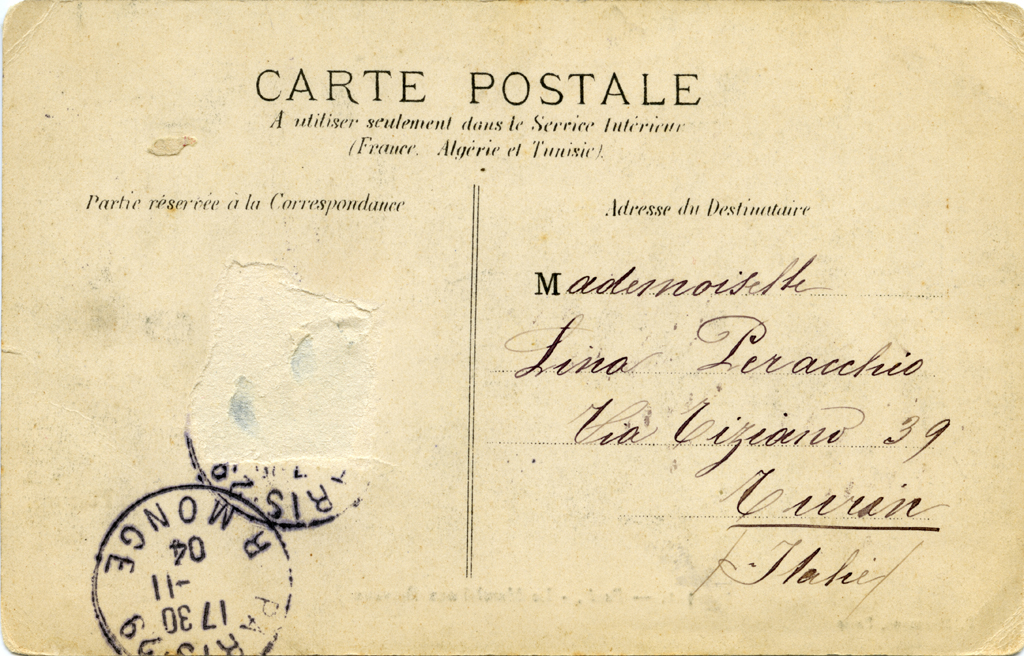 CARTE POSTALE
A utiliser seulement dans le Service Intérieur
(France, Algérie et Tunisie).
Partie réservée à la Correspondance
Adresse du Destinataire
Mademoiselle
Lina Peracchio
Via Tiziano 39
Turin
(Italie)
PARIS 29
R MONGE
17 30
-11
04
RIS